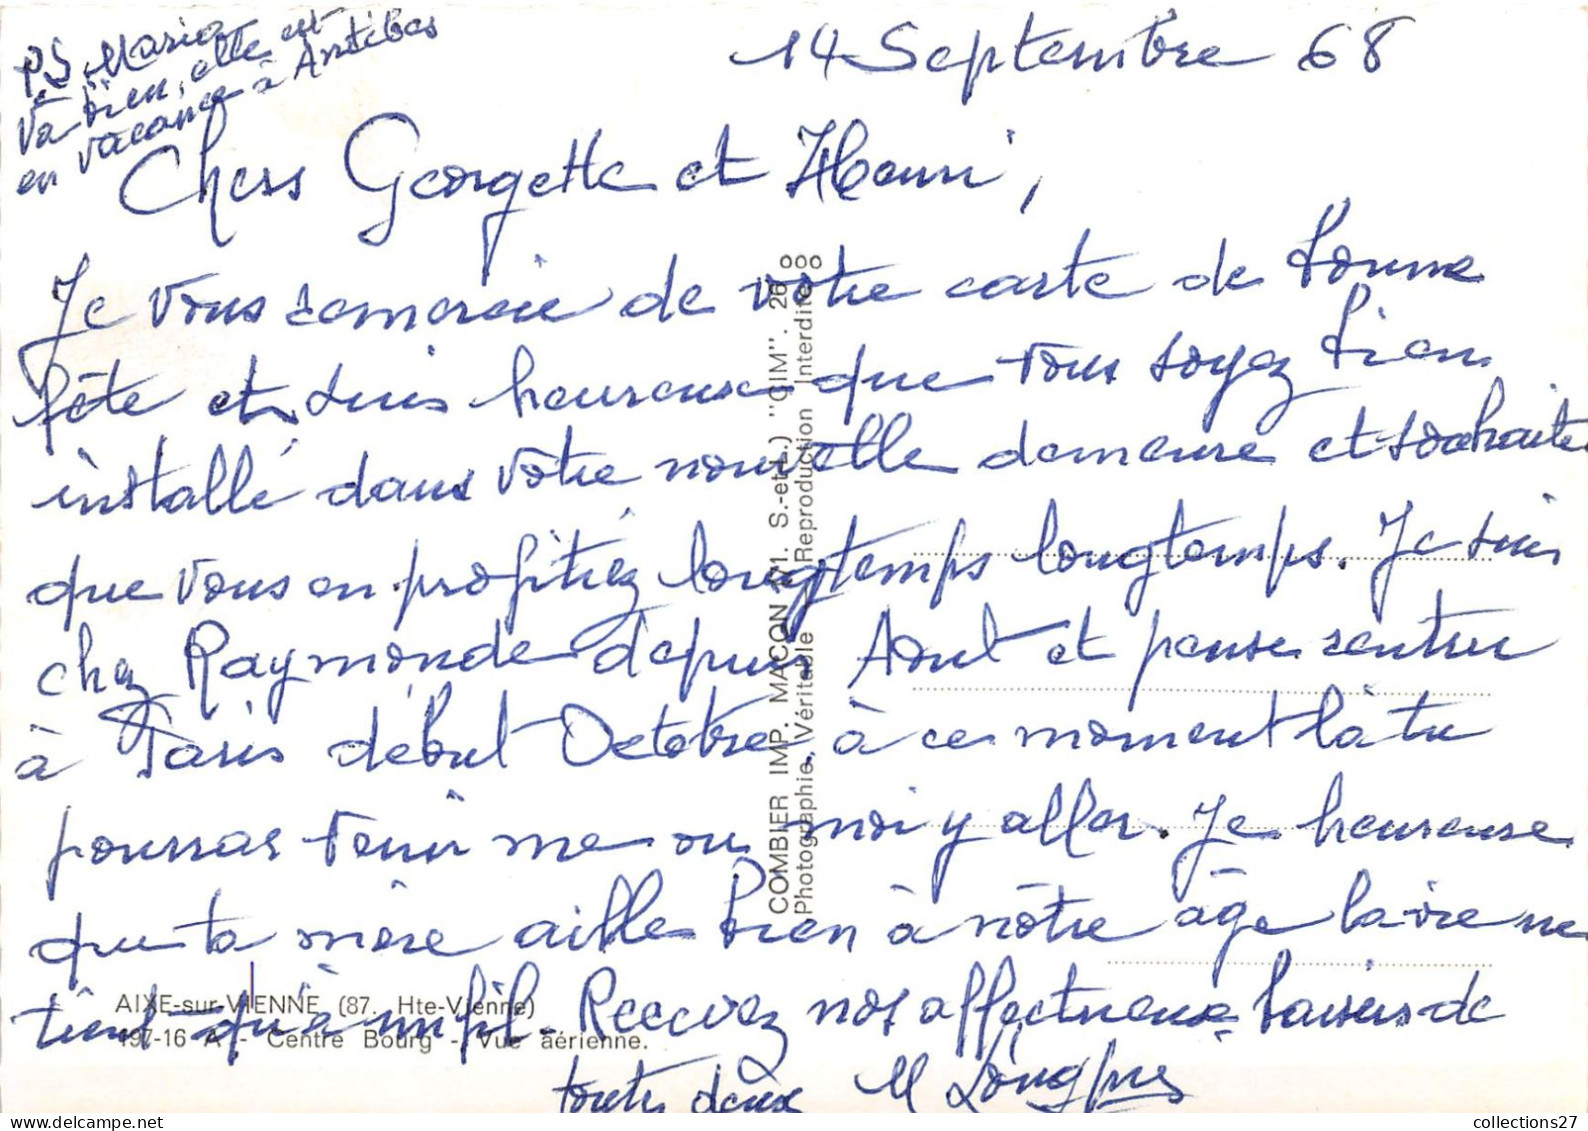 14 Septembre 68
P.S. Maria
va bien, elle est
en vacance à Antibes
Chers Georgette et Henri,
Je vous remercie de votre carte de bonne
fête et suis heureuse que vous soyez bien
installé dans votre nouvelle demeure et souhaite
que vous en profitiez longtemps longtemps. Je suis
chez Raymonde depuis Aout et pense rentrer
à Paris début Octobre, à ce moment là tu
pourras venir me ou moi y aller. Je heureuse
que ta mère aille bien à nôtre âge la vie ne
tient qu'à un fil. Recevez nos affectueux baisers de
toutes deux M
AIXE-sur-VIENNE (87. Hte-Vienne)
497-16 A - Centre Bourg - Vue aérienne.
COMBIER IMP. MACON (71. S.-et-L.) "CIM". 26
Photographie Véritable Reproduction Interdite
collections27